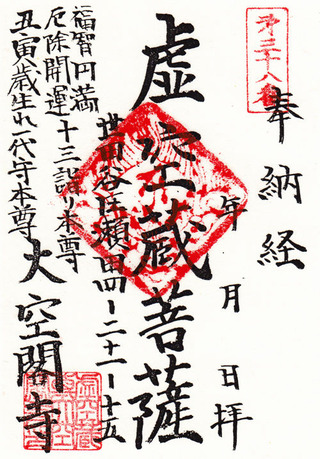 第三十八番
奉納経
年月日拝
虚空蔵菩薩
世田谷区瀬田四ー二十一ー十五
福智円満
厄除開運十三詣り本尊
丑寅歳生れ一代守本尊
大空閣寺